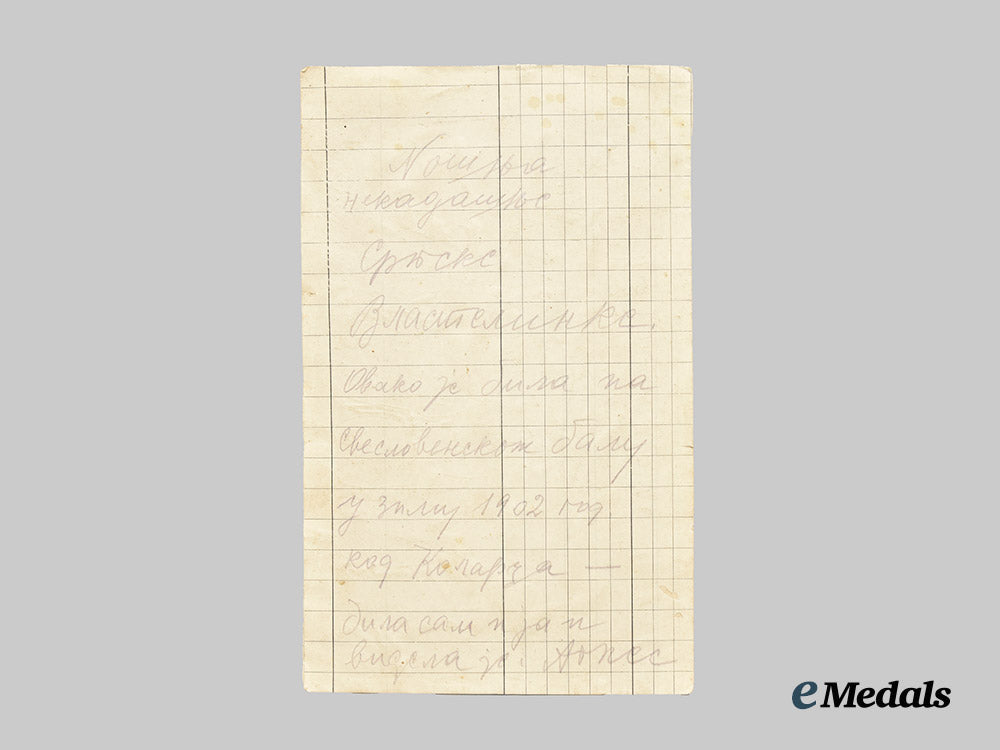 Ношња
некадашње
Српске
Властелинке.
Овако је била на
Свесловенском балу
у зиму 1902 год
код Коларца —
била сам и ја и
видела је.
eMedals